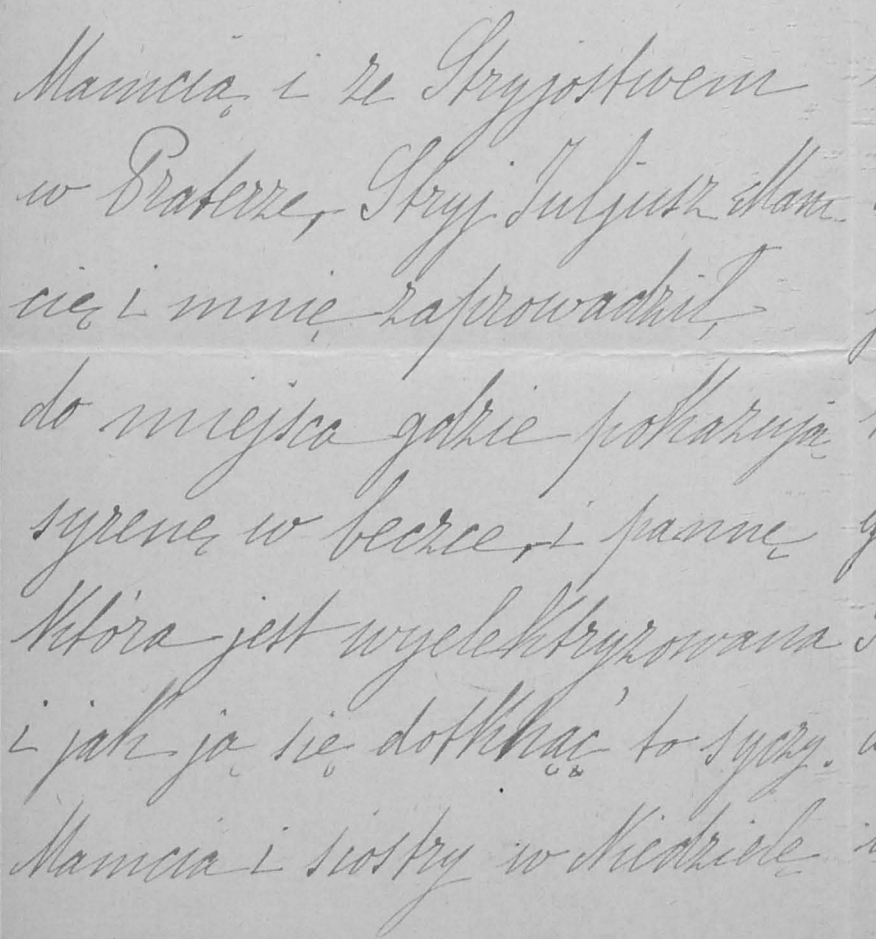 Mamcią i ze Stryjostwem
w Praterze, Stryj Juljusz Mam-
cię i mnię zaprowadził,
do miejsca gdzie pokazują
syrenę w beczce, i pannę
która jest wyelektryzowana
i jak ją się dotknąć to syczy.
Mamcia i siostry w Niedzielę